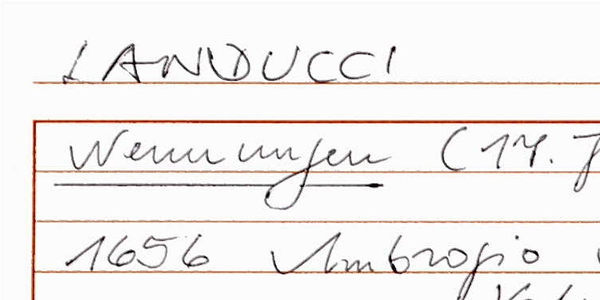 LANDUCCI
Nennungen (17. J
1656 Ambrogio